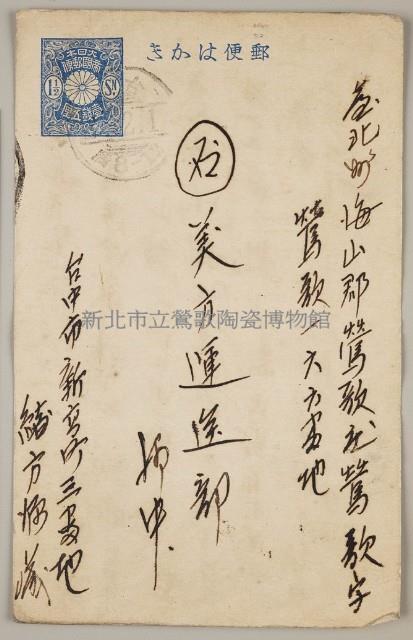 郵便はかき
大日本
帝國郵便
壹錢五厘
1½ Sn.
臺北州海山郡鶯歌庄鶯歌字
鶯歌一六六番地
美方運送部
御中
台中市新富町三番地
新北市立鶯歌陶瓷博物館